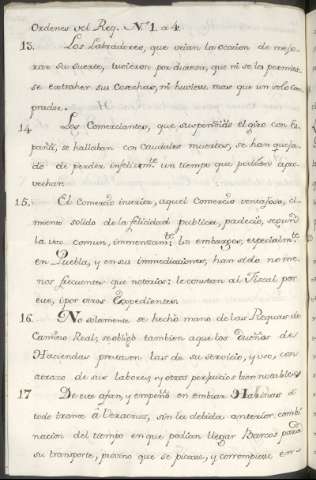 Ordenes del Reg. N.º 1 a 4
13. Los Labradores, que veian la ocasion de mejo-
rar su suerte, tuvieron por duresa, que ni se la permita
se extraher sus Cosechas, ni huviese mas que un solo com
prador.
14 Los Comerciantes, que suspendido el giro con Es-
paña, se hallaban con Caudales muertos, se han queja-
do de perder infelizm.te un tiempo que podian apro-
vechar.
15. El Comercio interior, aquel Comercio ventajoso, ci-
miento solido de la felicidad publica, padecio, segun
la voz comun, inmensam.te los embargos, especialm.te
en Puebla, y en sus inmediaciones, han sido no me-
nos frecuentes que notorios: le constan al Fiscal por
este, i por otros Expedientes.
16. No solamente se hecho mano de las Requas de
Camino Real, se obligó tambien a que los Dueños de
Haciendas prestasen las de su servicio, y uso, con
atraso de sus labores, y otros perjuicios bien notables
17 De este afan, y empeño en embiar Harinas a
todo trance á Veracruz, sin la debida anterior combi
nacion del tiempo en que podian llegar Barcos para
su transporte, provino que se picaran, y corrompieran en-